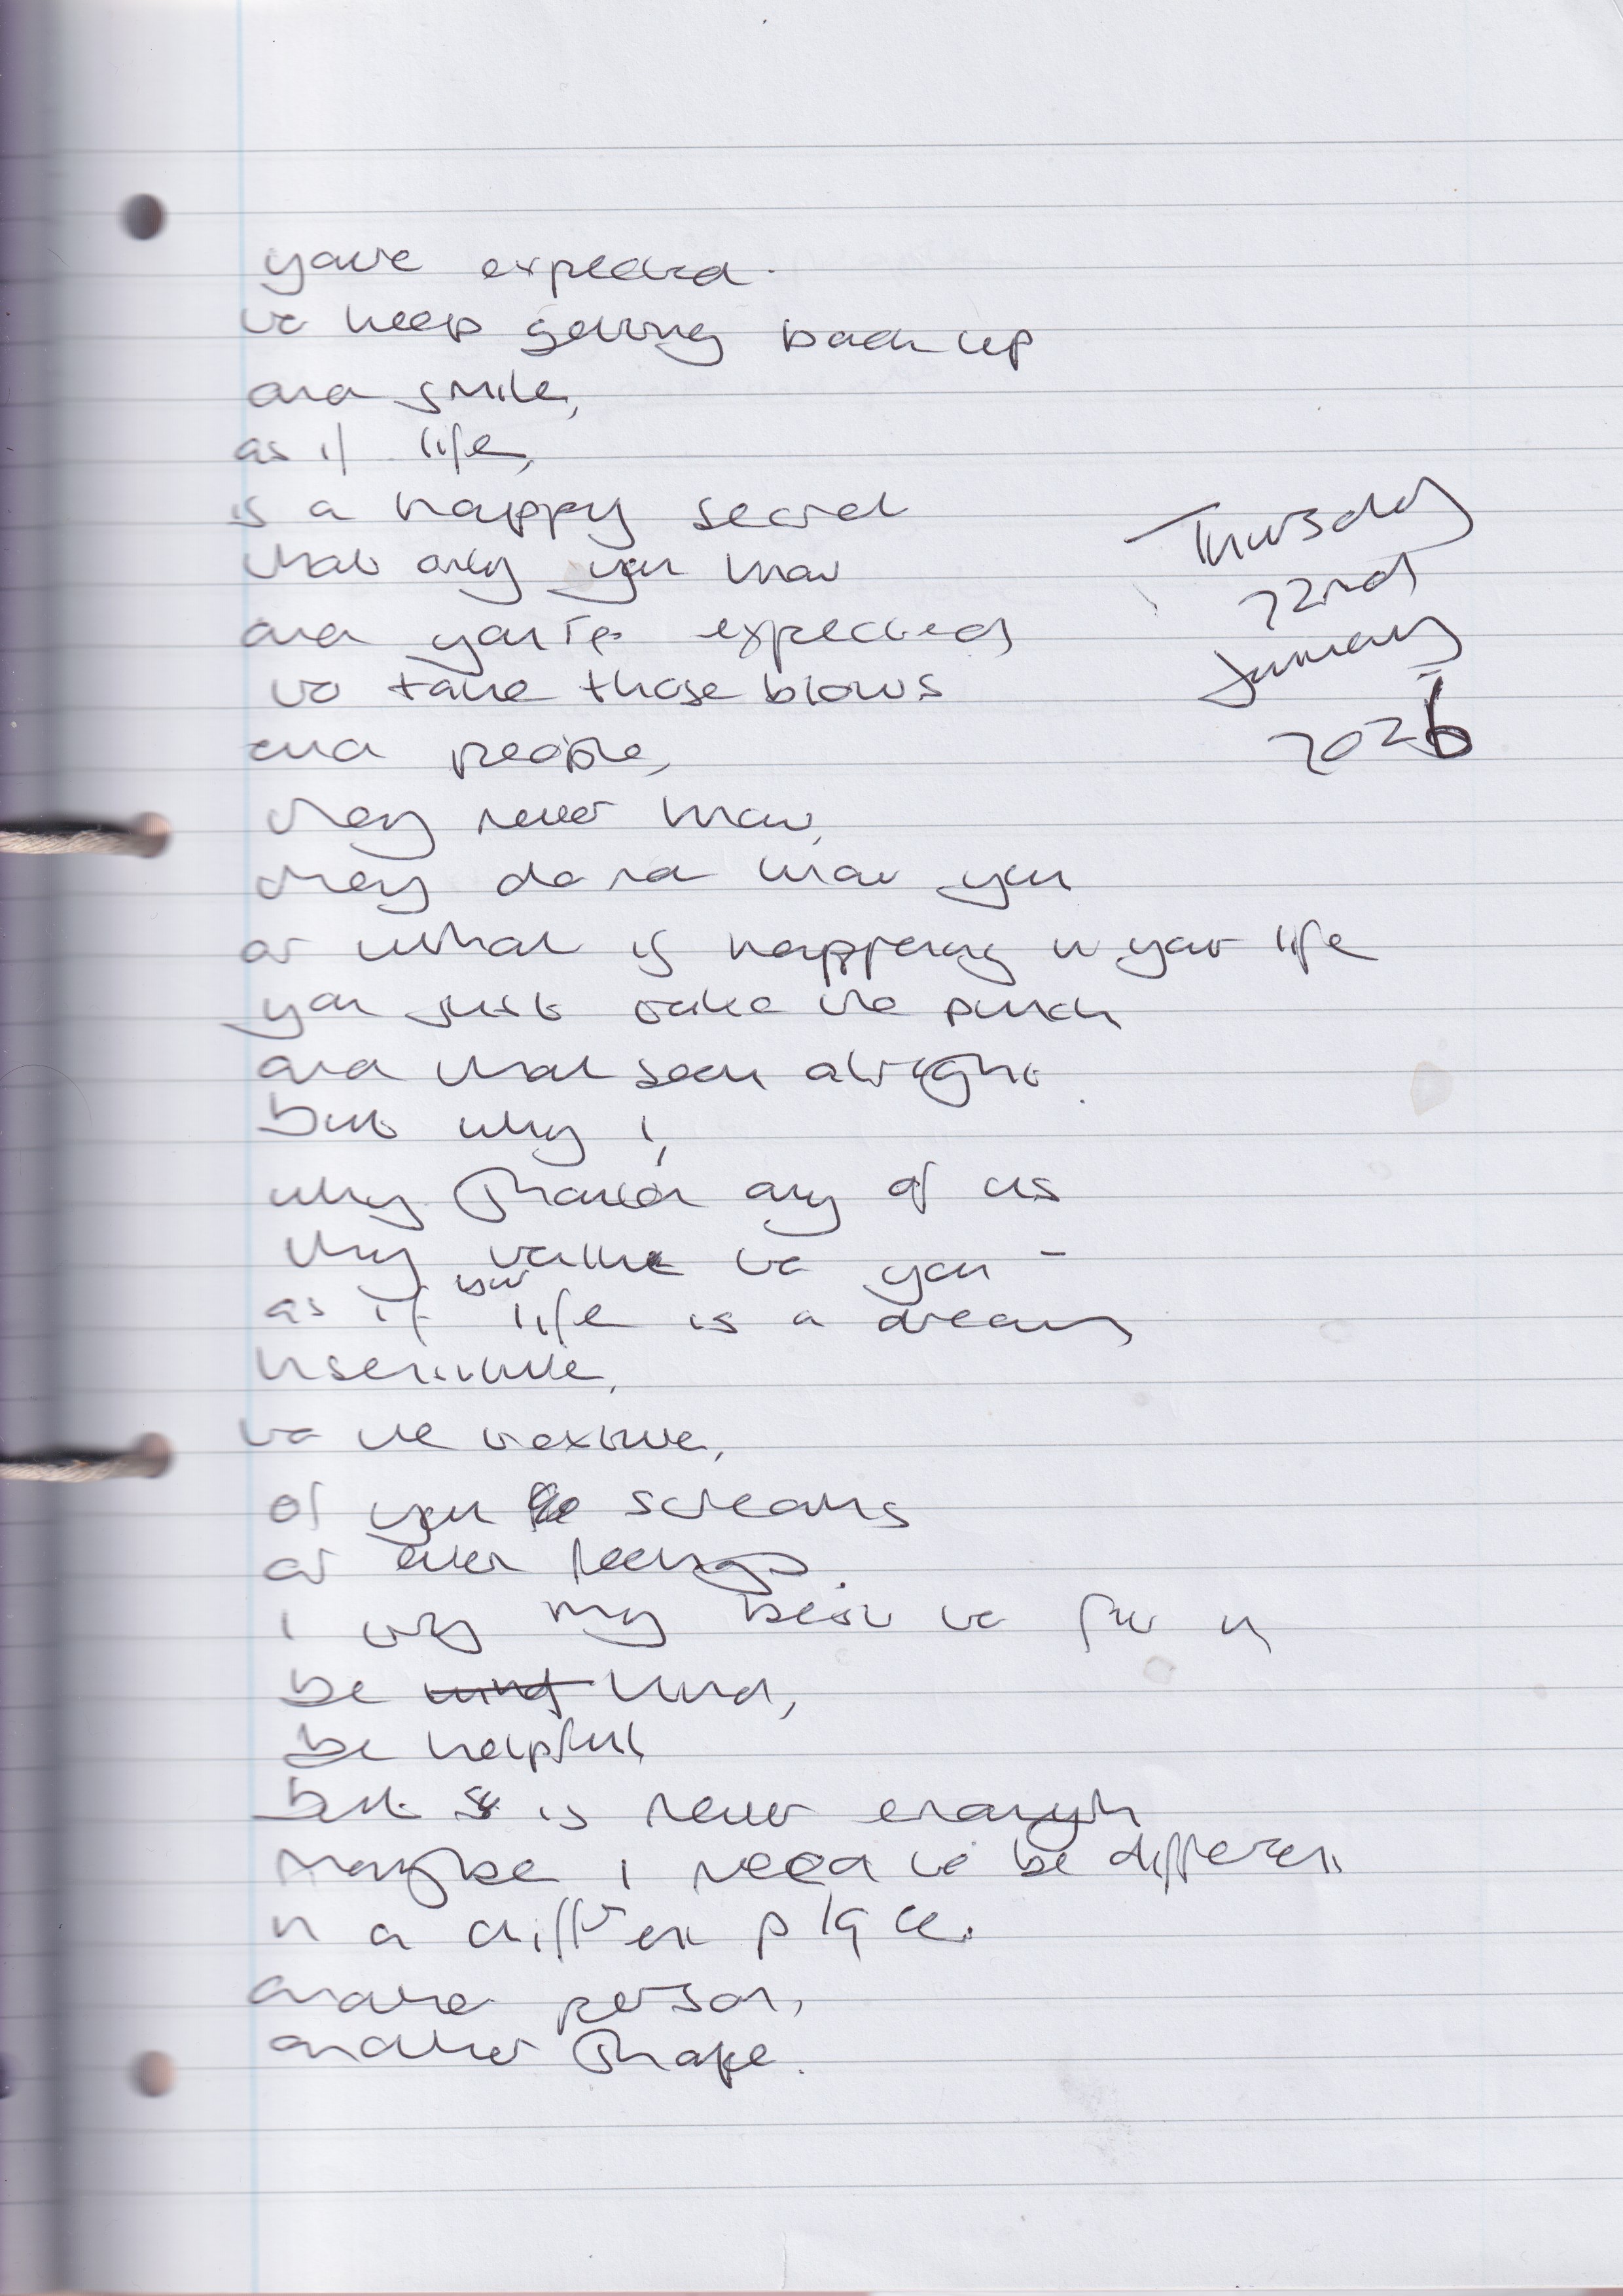 you're expected
to keep getting back up
and smile,
as if life,
is a happy secret
that only you know
and you're expected
to take those blows
and people,
they never know,
they do not know you
or what is happening in your life
you just take the punch
and that seem alright.
but why i,
why should any of us
they talk to you -
as if your life is a dream
insensitive,
to the texture,
of you screams
or even feelings.
i try my best to fit in
be kind kind,
be helpful,
but is never enough
maybe i need to be different
in a different place.
another person,
another shape.
Thursday
22nd
January
2026